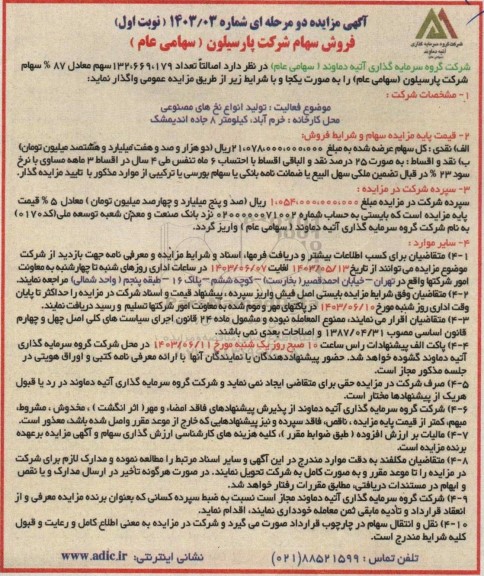 آگهی مزایده دو مرحله ای شماره ۱۴۰۳/۰۳ (نوبت اول)
فروش سهام شرکت پارسیلون (سهامی عام)
شرکت گروه سرمایه گذاری آتیه دماوند (سهامی عام) در نظر دارد اصالتاً تعداد ۱۳۲،۶۶۹،۱۷۹ سهم معادل ۸۷ % سهام
شرکت پارسیلون (سهامی عام) را به صورت یکجا و با شرایط زیر از طریق مزایده عمومی واگذار نماید:
۱- مشخصات شرکت :
موضوع فعالیت : تولید انواع نخ های مصنوعی
محل کارخانه : خرم آباد، کیلومتر ۸ جاده اندیمشک
۲- قیمت پایه مزایده سهام و شرایط فروش:
الف) نقدی : کل سهام عرضه شده به مبلغ ۲۱،۰۷۸،۰۰۰،۰۰۰،۰۰۰ ریال (دو هزار و صد و هفت میلیارد و هشتصد میلیون تومان)
ب) نقد و اقساط : به صورت ۲۵ درصد نقد و الباقی اقساط با احتساب ۶ ماه تنفس طی ۴ سال در اقساط ۳ ماهه مساوی با نرخ
سود ۲۳ % در قبال تضمین ملکی سهل البیع یا ضمانت نامه بانکی یا سهام بورسی یا ترکیبی از موارد مذکور با تایید مزایده گذار.
۳- سپرده شرکت در مزایده :
سپرده شرکت در مزایده مبلغ ۱،۰۵۴،۰۰۰،۰۰۰،۰۰۰ ریال (صد و پنج میلیارد و چهارصد میلیون تومان) معادل ۵ % قیمت
پایه مزایده است که بایستی به حساب شماره ۰۲۰۰۰۰۰۰۷۱۰۰۲ نزد بانک صنعت و معدن شعبه توسعه ملی(کد ۰۱۷۰)
به نام شرکت گروه سرمایه گذاری آتیه دماوند (سهامی عام) واریز گردد.
۴- سایر موارد :
۴-۱) متقاضیان برای کسب اطلاعات بیشتر و دریافت فرمها، اسناد و شرایط مزایده و معرفی نامه جهت بازدید از شرکت
موضوع مزایده می توانند از تاریخ ۱۴۰۳/۰۵/۱۳ لغایت ۱۴۰۳/۰۶/۰۷ در ساعات اداری روزهای شنبه تا چهارشنبه به معاونت
امور شرکتها واقع در تهران – خیابان احمدقصیر( بخارست) – کوچه ششم – پلاک ۱۶ – طبقه پنجم ( واحد شمالی) مراجعه نمایند.
۴-۲) متقاضیان وفق شرایط مزایده بایستی اصل فیش واریز سپرده ، پیشنهاد قیمت و اسناد شرکت در مزایده را حداکثر تا پایان
وقت اداری روز شنبه مورخ ۱۴۰۳/۰۶/۱۰ در پاکتهای مهر و موم شده به معاونت امور شرکتها تسلیم و رسید دریافت نمایند.
۴-۳) متقاضیان اقرار می نمایند، ممنوع المعامله نبوده و مشمول ماده ۲۴ قانون اجرای سیاست های کلی اصل چهل و چهارم
قانون اساسی مصوب ۱۳۸۷/۰۴/۳۱ و اصلاحات بعدی نمی باشند.
۴-۴) پاکت الف پیشنهادات راس ساعت ۱۰ صبح روز یک شنبه مورخ ۱۴۰۳/۰۶/۱۱ در محل شرکت گروه سرمایه گذاری
آتیه دماوند گشوده خواهد شد. حضور پیشنهاددهندگان یا نمایندگان آنها با ارائه معرفی نامه کتبی و اوراق هویتی در
جلسه مذکور مجاز است.
۴-۵) صرف شرکت در مزایده حقی برای متقاضی ایجاد نمی نماید و شرکت گروه سرمایه گذاری آتیه دماوند در رد یا قبول
هریک از پیشنهادها مختار است.
۴-۶) شرکت گروه سرمایه گذاری آتیه دماوند از پذیرش پیشنهادهای فاقد امضاء و مهر( اثر انگشت ) ، مخدوش ، مشروط،
مبهم، کمتر از قیمت پایه مزایده ، ناقص، فاقد سپرده و نیز پیشنهادهایی که خارج از موعد مقرر واصل شده باشد، معذور است.
۴-۷) مالیات بر ارزش افزوده ( طبق ضوابط مقرر )، کلیه هزینه های کارشناسی ارزش گذاری سهام و آگهی مزایده برعهده
برنده مزایده است.
۴-۸) متقاضیان مکلفند به دقت موارد مندرج در این آگهی و سایر اسناد مرتبط را مطالعه نموده و مدارک لازم برای شرکت
در مزایده را تا موعد مقرر و به صورت کامل به شرکت تحویل نمایند. در صورت هرگونه تأخیر در ارسال مدارک و یا نقص
و ابهام در مستندات دریافتی، مطابق مقررات رفتار خواهد شد.
۴-۹) شرکت گروه سرمایه گذاری آتیه دماوند مجاز است نسبت به ضبط سپرده کسانی که بعنوان برنده مزایده معرفی و از
انعقاد قرارداد و تأدیه مابقی ثمن معامله خودداری نمایند، اقدام نماید.
۴-۱۰) نقل و انتقال سهام در چارچوب قرارداد صورت می گیرد و شرکت در مزایده به معنی اطلاع کامل و رعایت و قبول
کلیه شرایط مندرج است.
تلفن تماس : ۸۸۵۲۱۵۹۹ (۰۲۱) نشانی اینترنتی: www.adic.ir